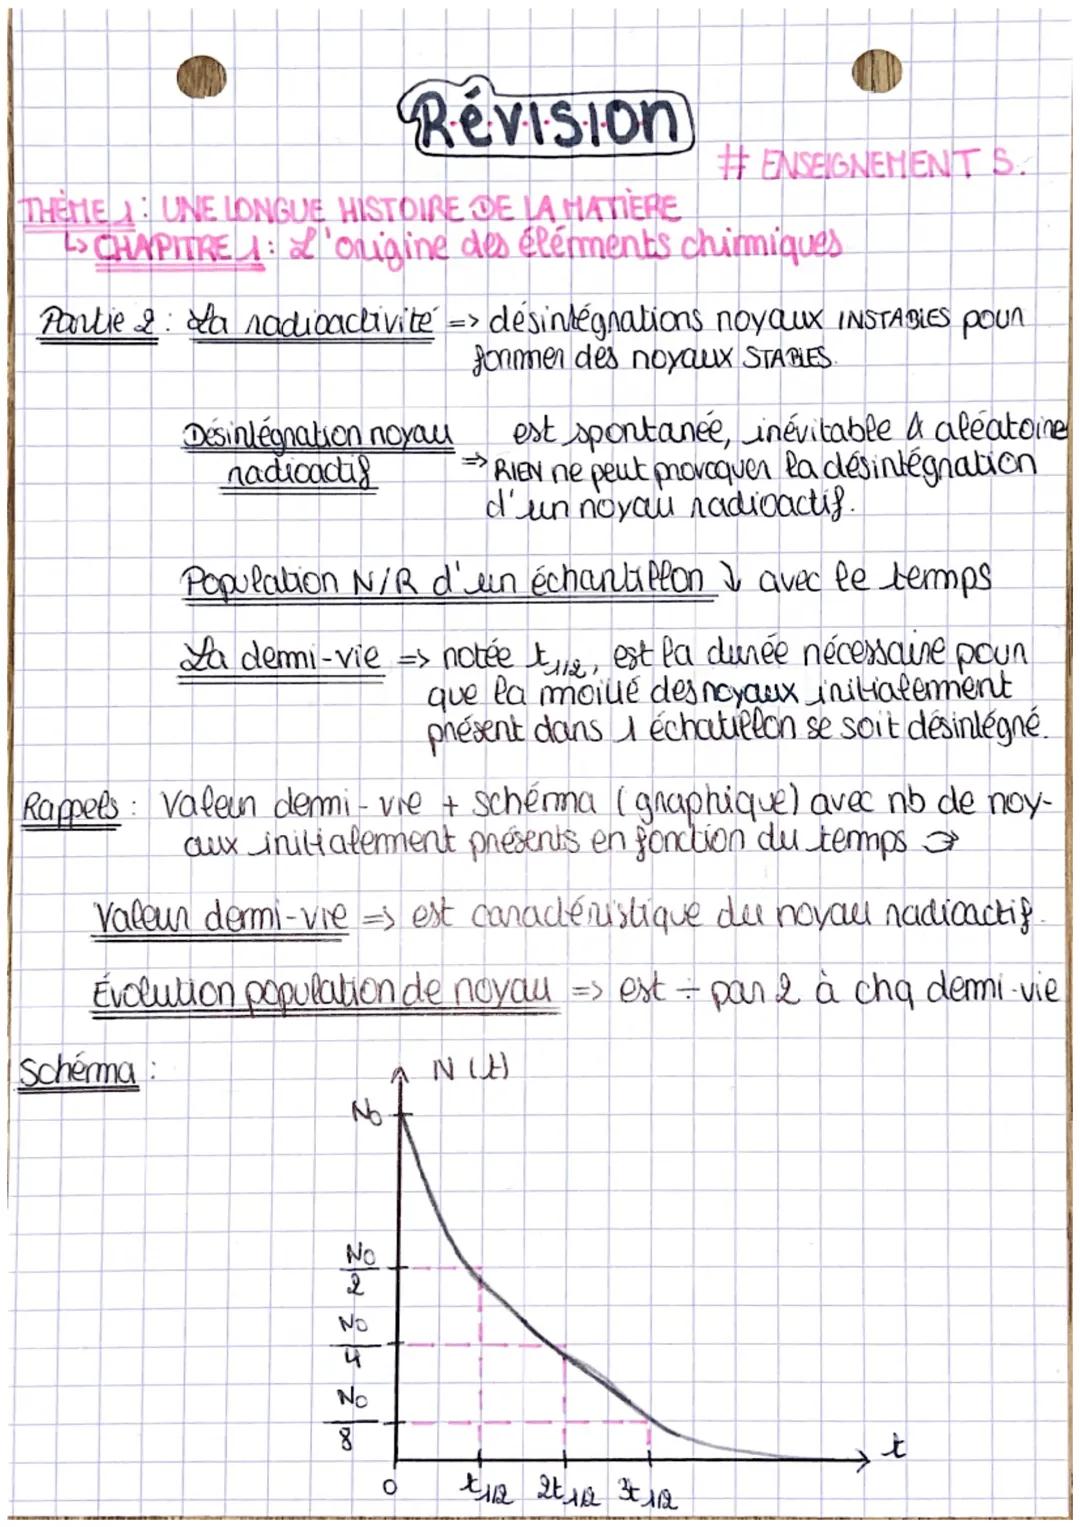 Révision
# ENSEIGNEMENT S.
THÈME 1 : UNE LONGUE HISTOIRE DE LA MATIÈRE
↳ CHAPITRE 1 : L'origine des éléments chimiques
Partie 2 : La radioactivité => désintégrations noyaux INSTABLES pour
former des noyaux STABLES.
Désintégration noyau est spontanée, inévitable & aléatoire
radioactif => RIEN ne peut provoquer la désintégration
d'un noyau radioactif.
Population N/R d'un échantillon ↓ avec le temps
La demi-vie => notée t1/2, est la durée nécessaire pour
que la moitié des noyaux initialement
présent dans 1 échatillon se soit désintégré.
Rappels : Valeur demi-vie + schéma (graphique) avec nb de noy-
aux initialement présents en fonction du temps →
Valeur demi-vie => est caractéristique du noyau radioactif.
Évolution population de noyau => est ÷ par 2 à chq demi-vie
Schéma :
N(t)
N0
N0/2
N0/4
N0/8
t
0 t1/2 2t1/2 3t1/2